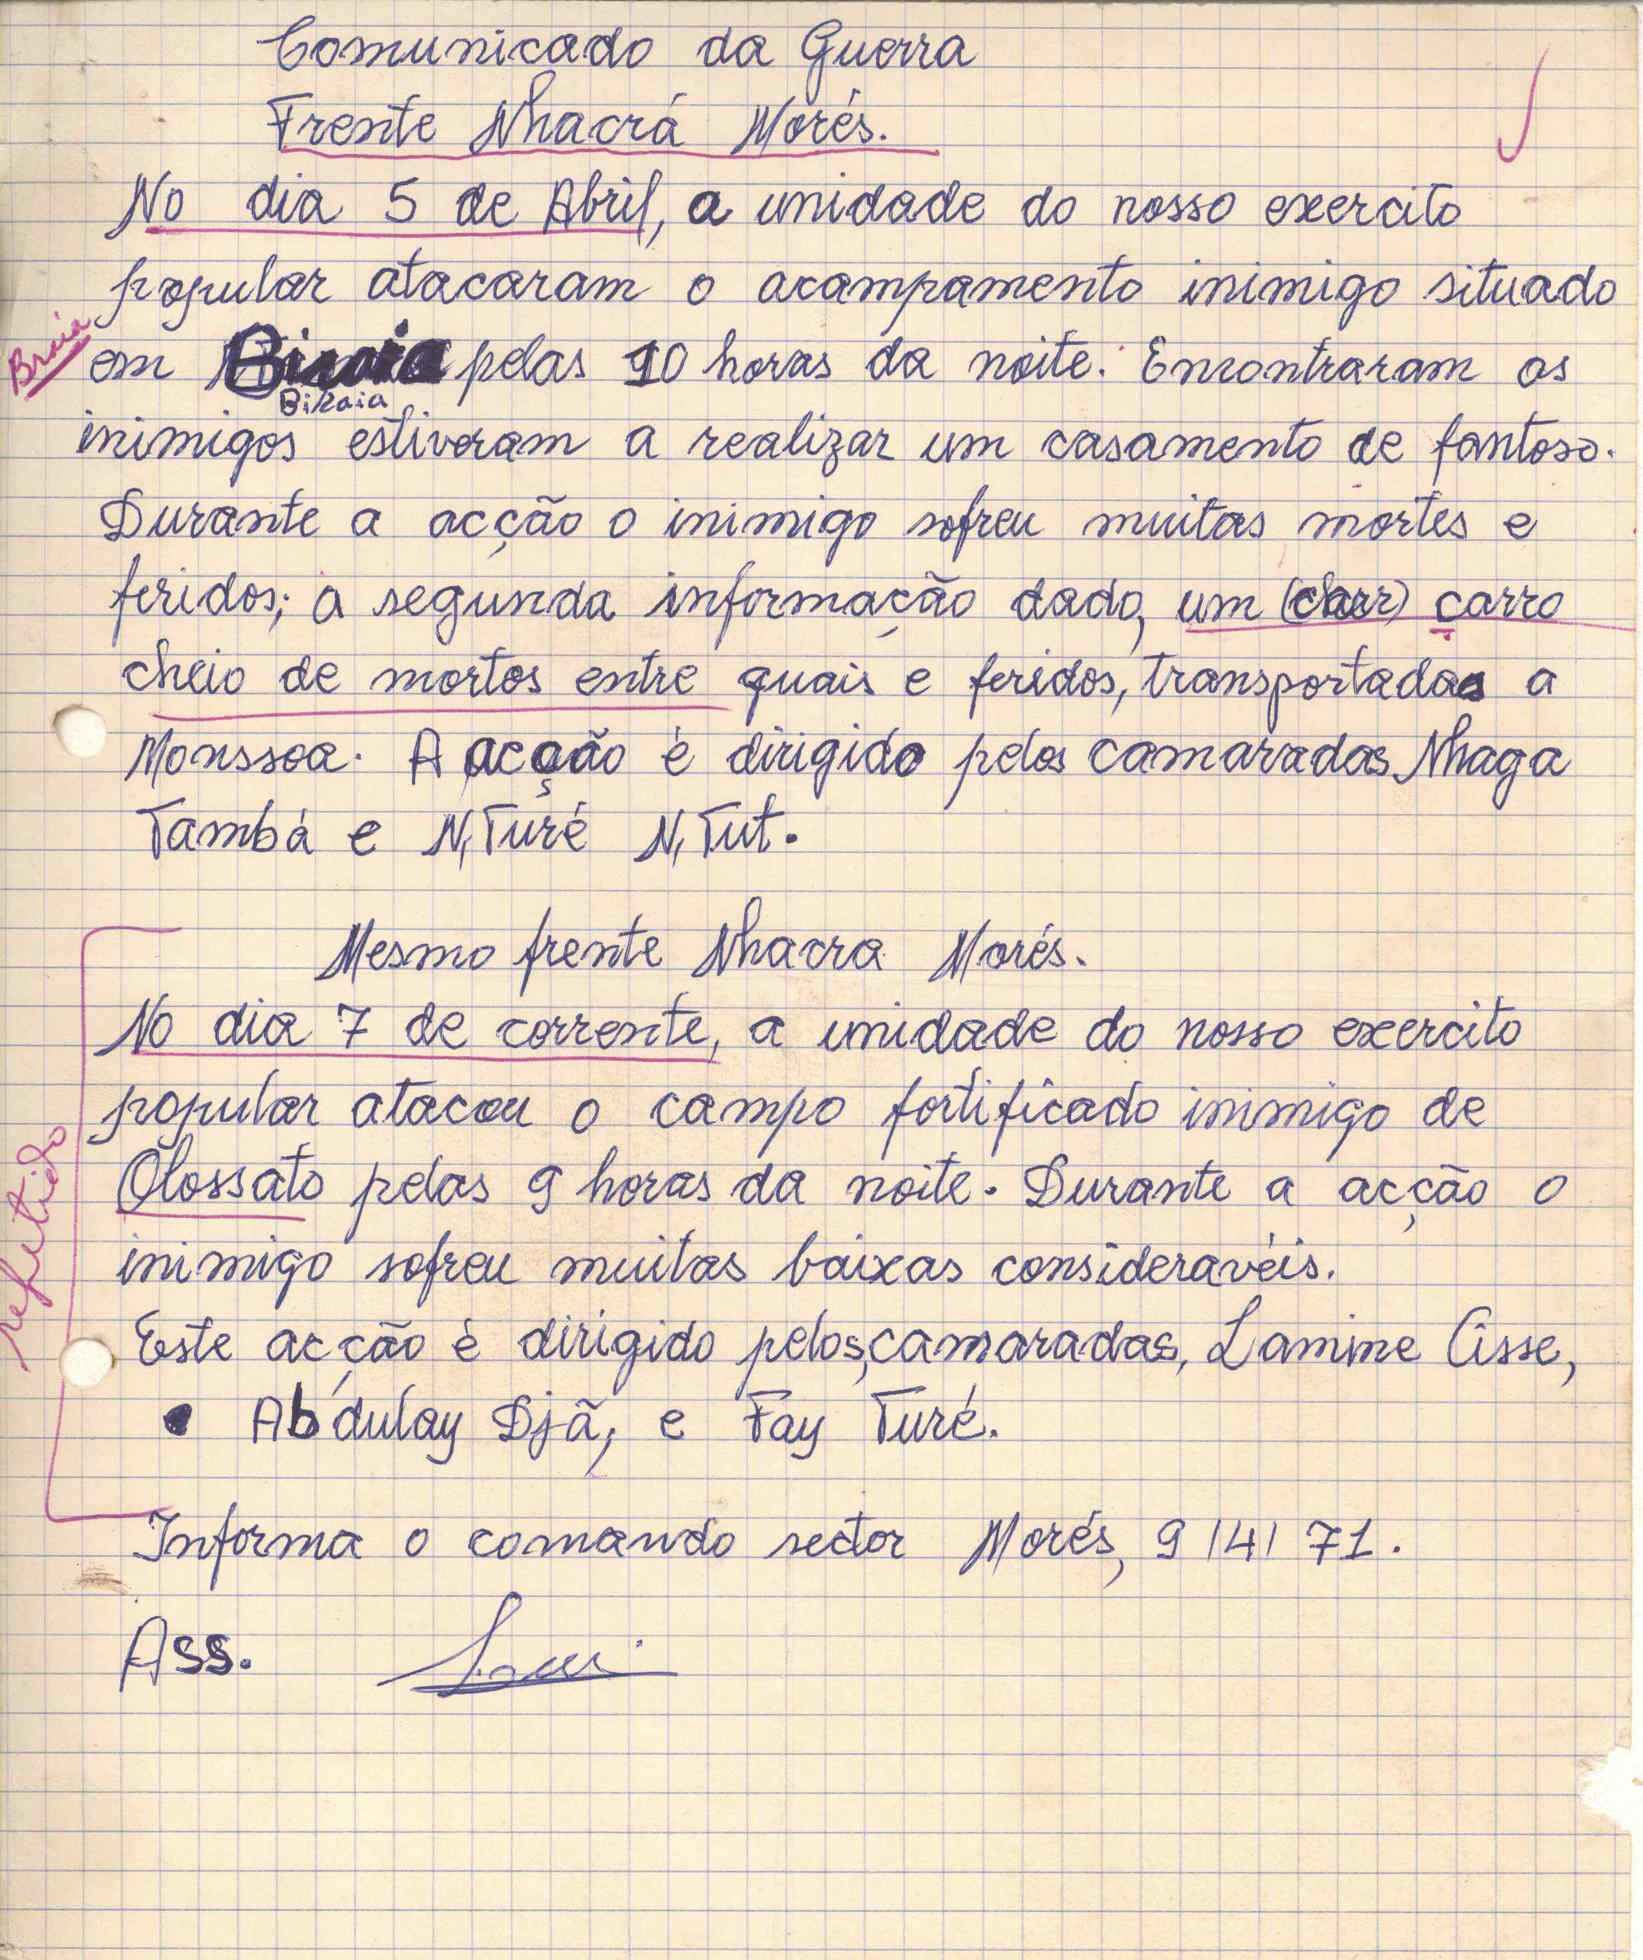 Comunicado da Guerra
Frente Nhacrá Morés.
No dia 5 de Abril, a unidade do nosso exercito
popular atacaram o acampamento inimigo situado
Braia
em Biraia pelas 10 horas da noite. Emontraram os
Biraia
inimigos estiveram a realizar um casamento de fantoso.
Durante a acção o inimigo sofreu muitas mortes e
feridos; a segunda informação dado, um (carr) carro
cheio de mortos entre quais e feridos, transportadas a
Monssoa. A acção é dirigido pelos camaradas Nhaga
Tambá e N, Turé N, Tut.
Mesmo frente Nhacra Morés.
No dia 7 de corrente, a unidade do nosso exercito
popular atacou o campo fortificado inimigo de
Olossato pelas 9 horas da noite. Durante a acção o
inimigo sofreu muitas baixas consideravéis.
Este acção é dirigido pelos, camaradas, Lamine Cisse,
Abdulay Djã, e Fay Turé.
refutido
Informa o comando sector Morés, 9/4/71.
Ass.